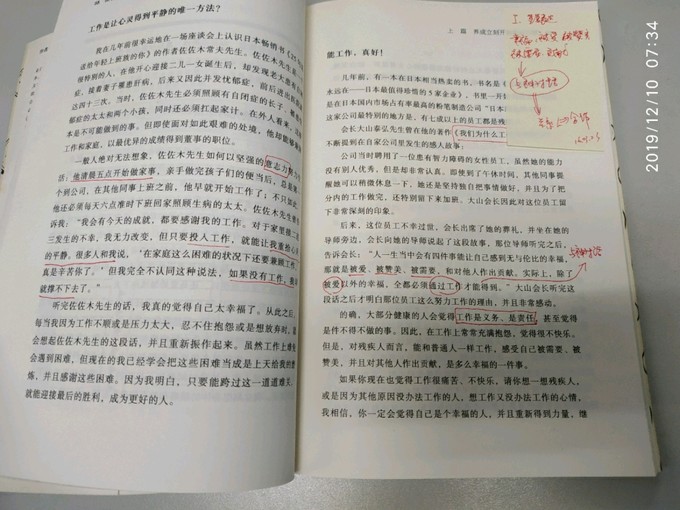 工作是让心灵得到平静的唯一方法?
我在几年前很幸运地在一场座谈会上认识日本畅销书
道给年轻上班族的你》的作者佐佐木常夫先生。佐佐木先生
很特别的人,在他开心迎接二儿一女诞生后,却发现老大患有自
症,接着妻子罹患肝病,后来又因此并发忧郁症,前后进出
达四十三次。当时,佐佐木先生必须照顾有自闭症的长子、被
症的太太和两个小孩,同时还须扛起家计。在外人看来,这
本是不可能做到的事。但即使面对如此艰难的处境,他却能够兼顾
工作和家庭,以最优异的成绩得到董事的职位。
一般人绝对无法想象,佐佐木先生如何以坚强的意志力
活:他清晨五点开始做家事,亲手做完孩子们的便当后,总
个到公司,在其他同事上班之前,他早就开始工作了;不只如此,
他还必须每天六点准时下班回家照顾生病的太太。佐佐木先生
诉我:"我会有今天的成就,都要感谢我的工作。对于家里接二
三发生的不幸,我无力改变,但只要投入工作,就能让我重拾心
的平静。很多人和我说,'在家庭这么困难的状况下还要兼顾工作,
真是辛苦你了。'但我完全不认同这种说法,如果没有工作,我
就撑不下去了。"
听完佐佐木先生的话,我真的觉得自己太幸福了。从此之后,
每当我因为工作不顺或是压力太大,忍不住抱怨或是想放弃时,
会想起佐佐木先生的这段话,并且重新振作起来。虽然工作上难免
会遇到困难,但现在的我已经学会把这些困难当成是上天给我的
炼,并且感谢这些困难。因为我明白,只要能跨过这一道道难关,
就能迎接最后的胜利,成为更好的人。
上篇 养成立刻
能工作,真好!
几年前,有一本在日本相当热卖的书,书名是
永远在——日本最值得珍惜的5家企业》。书里一开
是在日本国内市场占有率最高的粉笔制造公司"日本
这家公司最特别的地方是,有七成以上的员工都是残
会长大山泰弘先生曾在他的著作《我们为什么工
不断提到在自家公司里发生的感人故事:
公司当时聘用了一位患有智力障碍的女性员工,虽然她的能力
没有别人优秀,但是却非常认真。即使到了午休时间,其他同事提
醒她可以稍微休息一下,她还是坚持独自把事情做好,并且为了把
分内的工作做完,还特别留下来加班。大山会长因此对这位员工留
下非常深刻的印象。
后来,这位员工不幸过世,会长出席了她的葬礼,并坐在她的
导师旁边,会长向她的导师说起了这段故事,那位导师听完之后,
告诉会长:"人一生当中会有四件事能让自己感到无与伦比的幸福,
那就是被爱、被赞美、被需要,和对他人作出贡献。实际上,除了
被爱以外的幸福,全都必须通过工作才能得到。"大山会长听完这
段话之后才明白那位员工这么努力工作的理由,并且非常感动。
的确,大部分健康的人会觉得工作是义务、是责任,甚至觉得
是件不得不做的事。因此,在工作上常常充满抱怨,觉得很不快乐。
但是,对残疾人而言,能和普通人一样工作,感受自己被需要、被
赞美,并且对其他人作出贡献,是多么幸福的一件事。
如果你现在也觉得工作很痛苦、不快乐,请你想一想残疾人,
或是因为其他原因没办法工作的人,想工作又没办法工作的心情,
我相信,你一定会觉得自己是个幸福的人,并且重新得到力量,继
2019/12/10 07:34